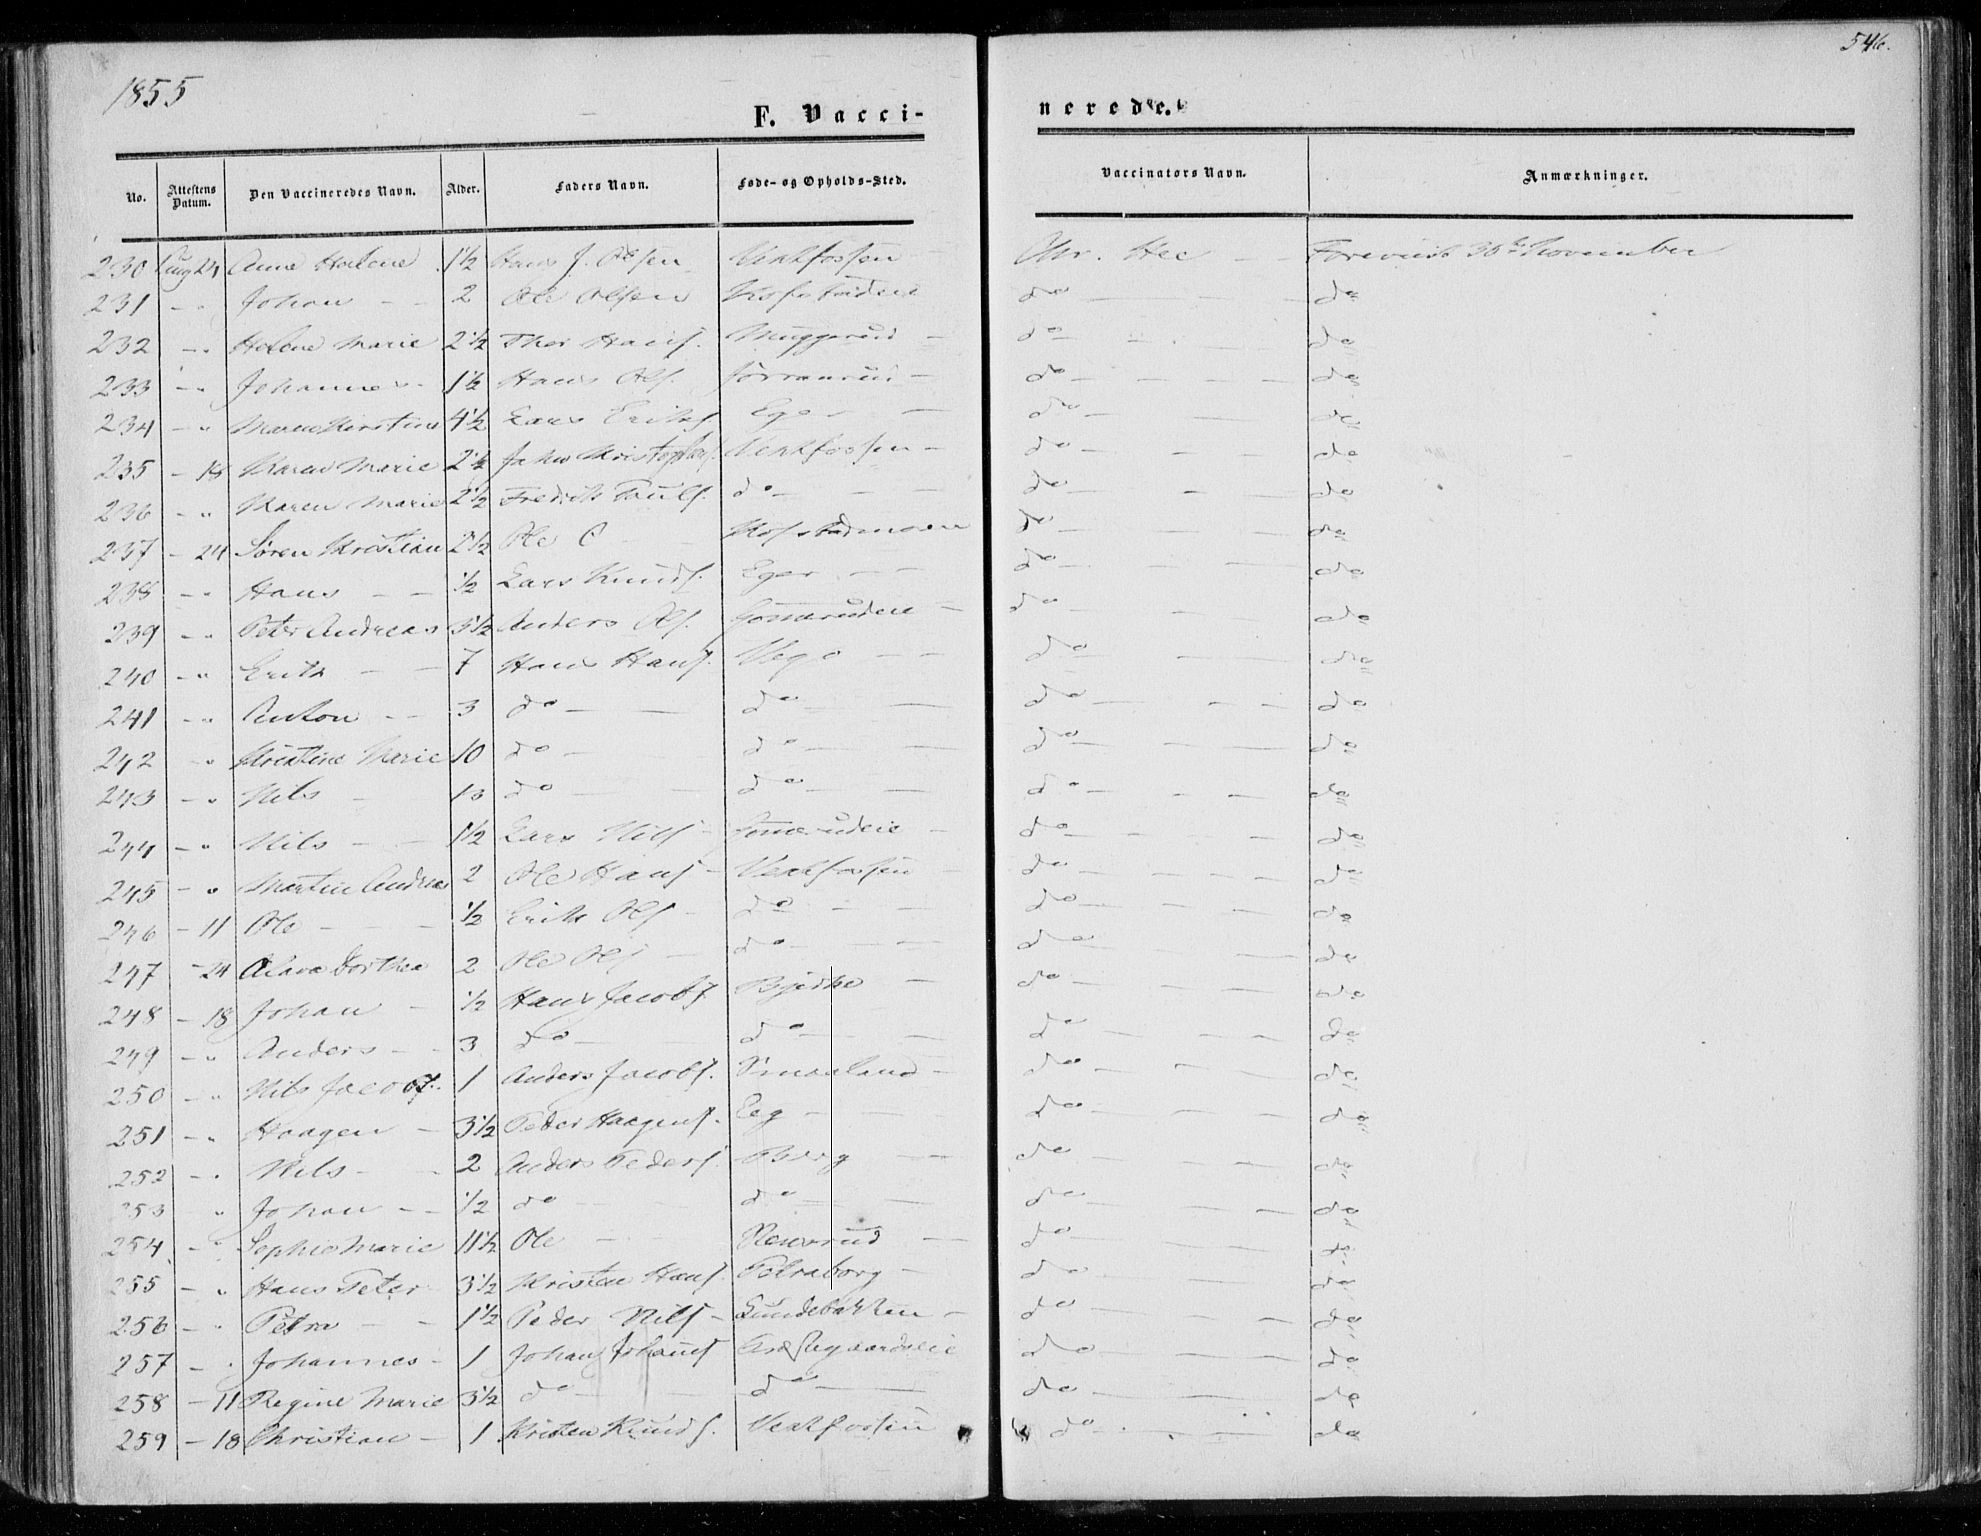 1855
546.
F. Vacci-
nerede.
No. Attestens Datum. Den Vaccineredes Navn. Alder. Faders Navn. Føde- og Opholds-Sted. Vaccinators Navn. Anmærkninger.
230 Aug 24 Anne Helene 1½ Hans J. Olsen Vestfossen Chr. Forevist 30te November
231 - " Johan - - 2 Ole Olsen do do
232 - " Helene Marie 2½ Thor Hans. Muggerud - do do
233 - " Johannes - 1½ Hans Ols. do do
234 - " Maren Kirstine 4½ Lars Eriks. do do
235 - 18 Karen Marie 2½ Vestfossen - do do
236 - " Karen Marie 2½ Fredrik Pouls. do - do do
237 - 24 Søren Kristian 2½ Ole do do
238 - " Hans - - ½ Lars Knuds. Eger - - do do
239 - " Peter Andreas 3½ Anders Ols. do do
240 - " Erik - - 7 Hans Hans. do do
241 - " Anton - - 3 do - do - do do
242 " Kristine Marie 10 do - do - do do
243 - " Nils - 13 do - do - do do
244 - " Nils - - 1½ Lars Nils. do do
245 - " Martin Andreas 2 Ole Hans. - Vestfossen do do
246 - 11 Ole - - - ½ Erik Ols. - do - do do
247 - 24 Dorthea 2 Ole Ols. do - do do
248 - 18 Johan - ½ Hans Jacobs. Bjerke - do do
249 - " Anders - - 3 do - do - do do
250 - " Nils Jacobs. 1 Anders Jacobs. Smaaland - do do
251 - " Haagen - 3½ Peder Haagens. Eeg - do do
252 - " Nils - 2 Anders Peders. Berg - do do
253 " Johan - - ½ do - do - do do
254 - " Sophie Marie 11½ Ole do do
255 - " Hans Peter 3½ Kristen Hans. do do
256 - " Petra - - 1½ Peder Nils. - Lundebakken - do do
257 - " Johannes - 1 Johan Johans. do do
258 - 11 Regine Marie 3½ do - do - do do
259 - 18 Christian - 1 Kristen Knuds. Vestfossen do do